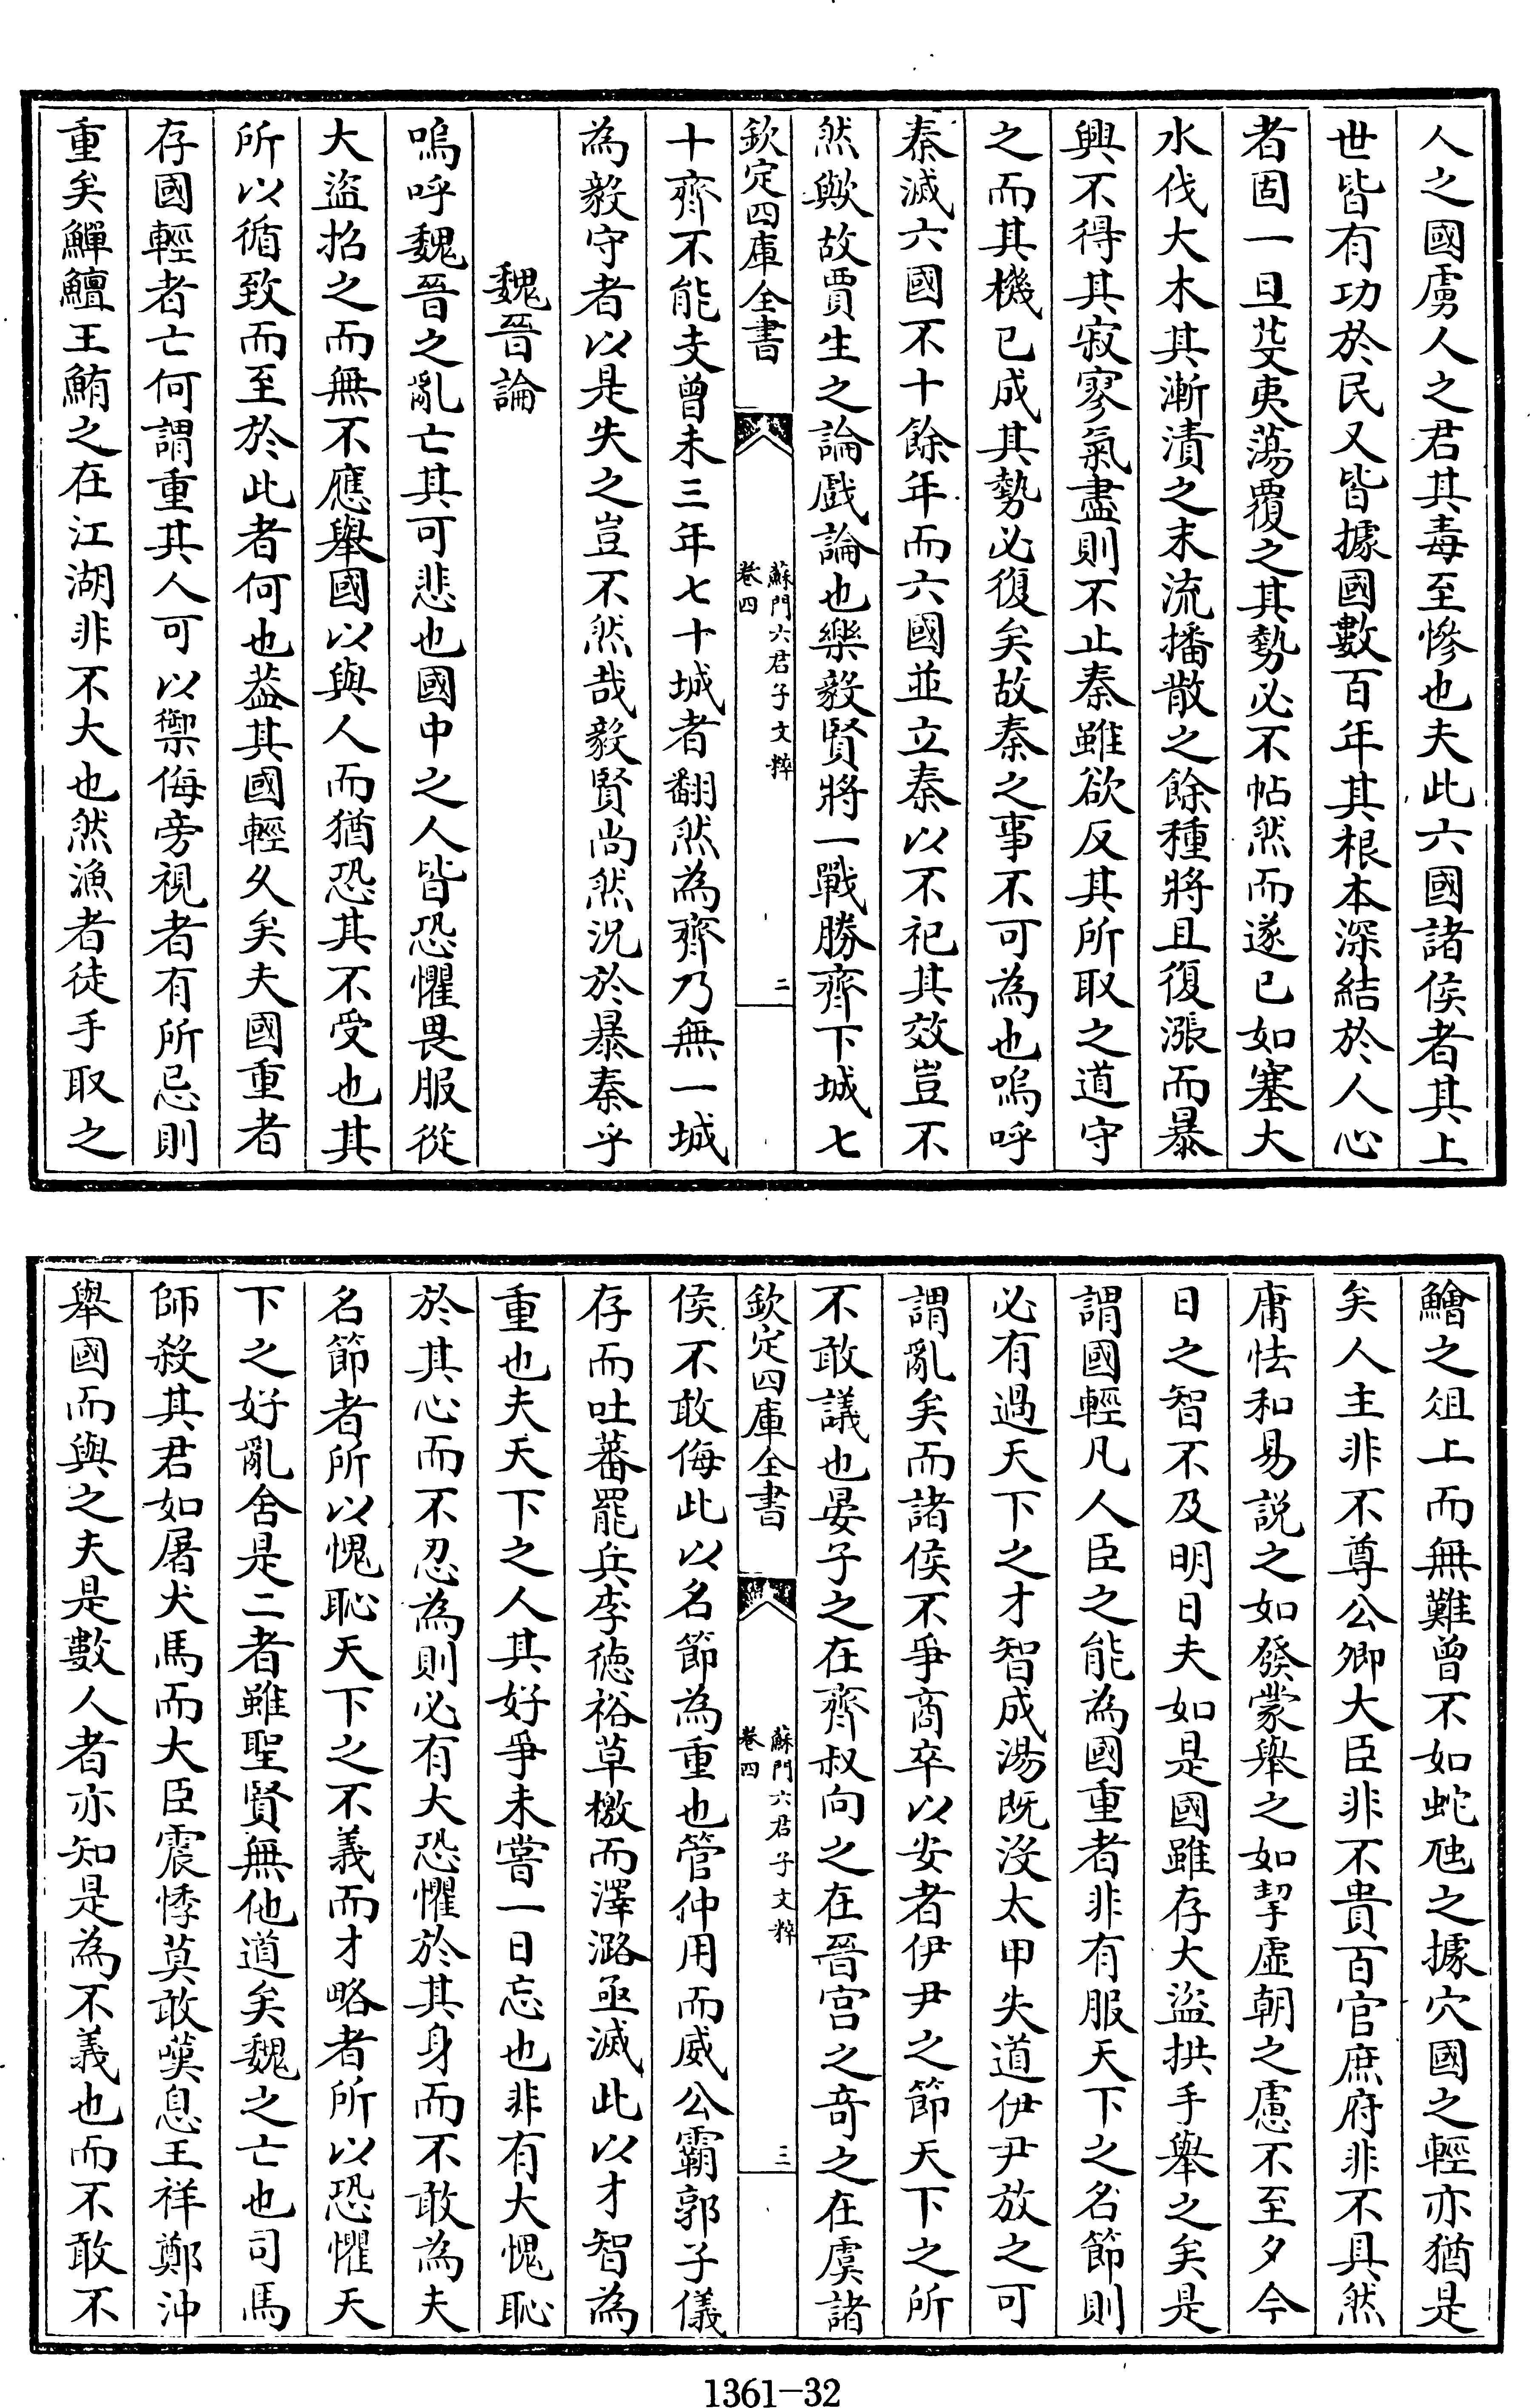 人之國虜人之君其毒至慘也夫此六國諸侯者其上
世皆有功於民又皆據國數百年其根本深結於人心
者固一旦芟夷蕩覆之其勢必不帖然而遂已如塞大
水伐大木其漸漬之末流播散之餘種將且復漲而暴
興不得其寂寥氣盡則不止秦雖欲反其所取之道守
之而其機已成其勢必復矣故秦之事不可為也嗚呼
秦滅六國不十餘年而六國並立秦以不祀其效豈不
然歟故賈生之論戲論也樂毅賢將一戰勝齊下城七
欽定四庫全書
蘇門六君子文粹
卷四
二
十齊不能支曾未三年七十城者翻然為齊乃無一城
為毅守者以是失之豈不然哉毅賢尚然況於暴秦乎
魏晉論
嗚呼魏晉之亂亡其可悲也國中之人皆恐懼畏服從
大盜招之而無不應舉國以與人而猶恐其不受也其
所以循致而至於此者何也葢其國輕久矣夫國重者
存國輕者亡何謂重其人可以禦侮旁視者有所忌則
重矣鱓鱣王鮪之在江湖非不大也然漁者徒手取之
鱠之俎上而無難曾不如蛇虺之據穴國之輕亦猶是
矣人主非不尊公卿大臣非不貴百官庶府非不具然
庸怯和易説之如發蒙舉之如挈虛朝之慮不至夕今
日之智不及明日夫如是國雖存大盜拱手舉之矣是
謂國輕凡人臣之能為國重者非有服天下之名節則
必有過天下之才智成湯既沒太甲失道伊尹放之可
謂亂矣而諸侯不爭商卒以安者伊尹之節天下之所
不敢議也晏子之在齊叔向之在晉宮之竒之在虞諸
欽定四庫全書
蘇門六君子文粹
卷四
三
侯不敢侮此以名節為重也管仲用而威公霸郭子儀
存而吐蕃罷兵李德裕草檄而澤潞亟滅此以才智為
重也夫天下之人其好爭未嘗一日忘也非有大愧恥
於其心而不忍為則必有大恐懼於其身而不敢為夫
名節者所以愧恥天下之不義而才略者所以恐懼天
下之好亂舍是二者雖聖賢無他道矣魏之亡也司馬
師殺其君如屠犬馬而大臣震悸莫敢嘆息王祥鄭沖
舉國而與之夫是數人者亦知是為不義也而不敢不
1361-32